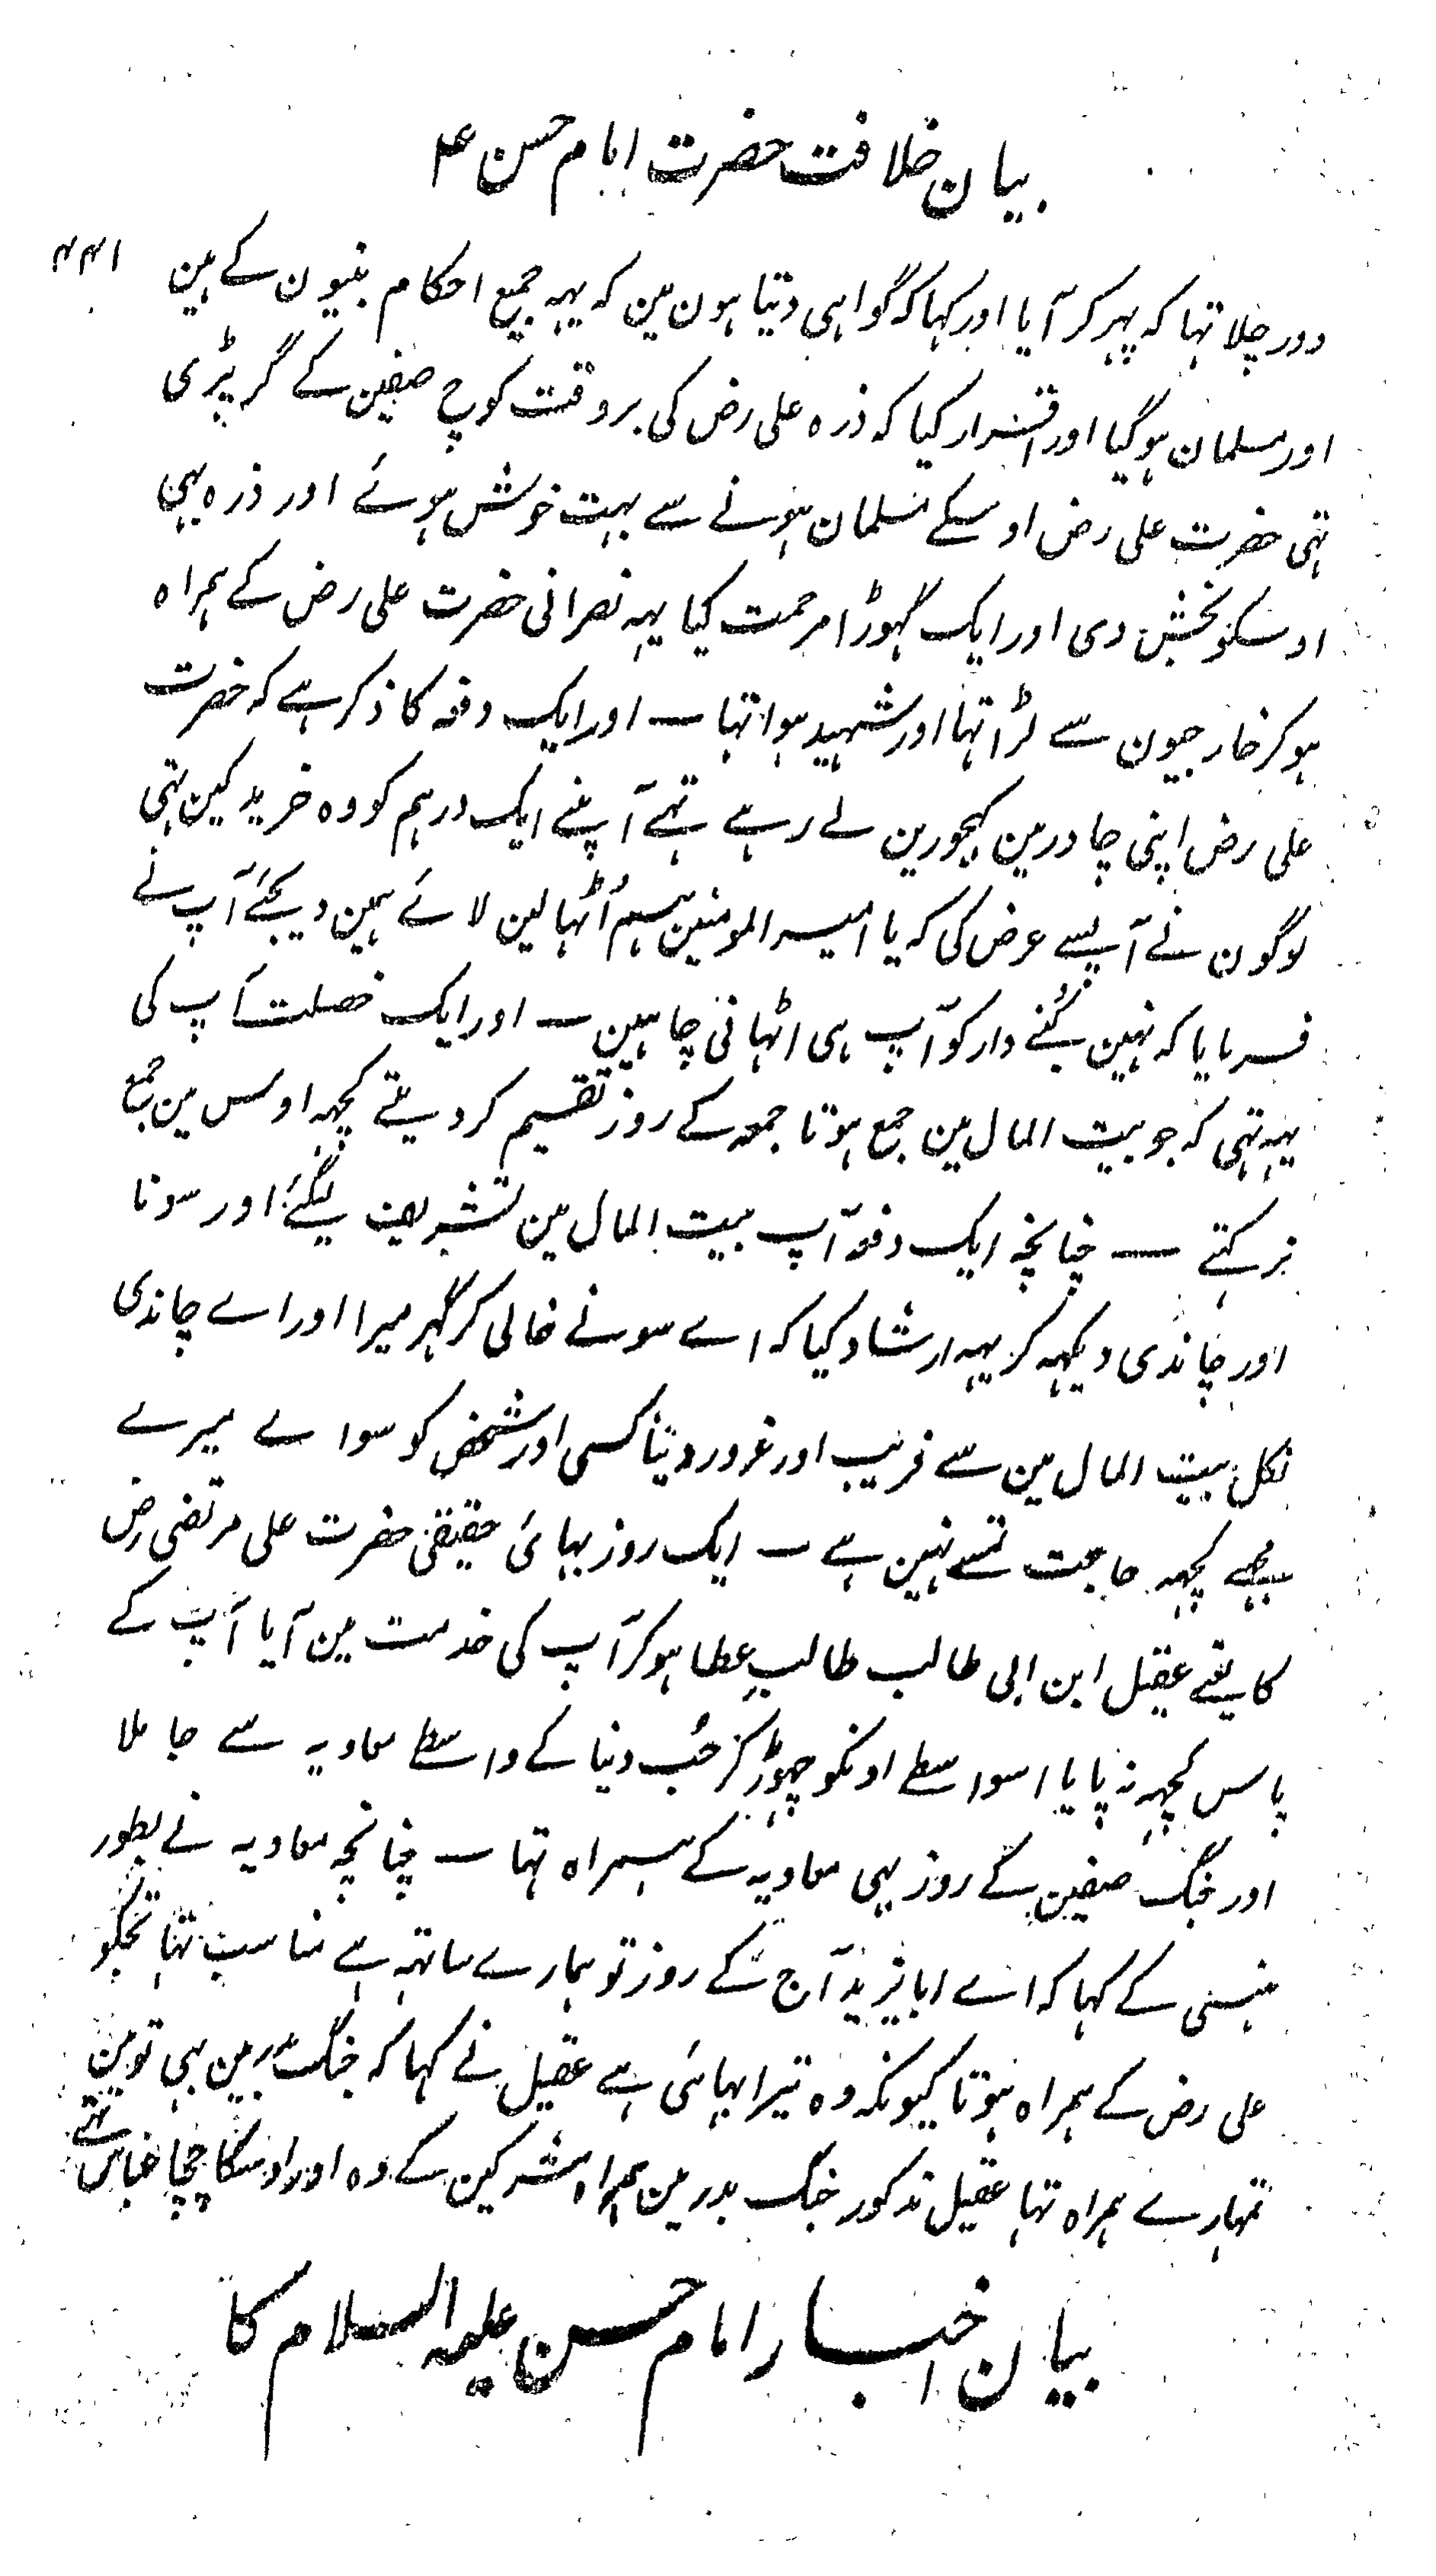 بیان خلافت حضرت امام حسن ع
۴۴۱
دور چلا تہا کہ پہر کر آیا اور کہا کہ گواہی دیتا ہون مین کہ یہہ جمیع احکام نبیون کے ہین
اور مسلمان ہو گیا اور اقرار کیا کہ ذرہ علی رض کی بروقت کوچ صفین کے گر پڑی
تہی حضرت علی رض اوسکے مسلمان ہونے سے بہت خوش ہوئے اور ذرہ بہی
اوسکو بخش دی اور ایک گہوڑا مرحمت کیا یہہ نصرانی حضرت علی رض کے ہمراہ
ہو کر خارجیون سے لڑا تہا اور شہید ہوا تہا — اور ایک دفعہ کا ذکر ہے کہ حضرت
علی رض اپنی چادر مین کہجورین لے رہے تہے آپنے ایک درہم کو وہ خرید کین تہی
لوگون نے آپسے عرض کی کہ یا امیر المومنین ہم اُٹہالین لائے ہمین دیجئے آپ نے
فرمایا کہ نہین کُنبے دار کو آپ ہی اٹہانی چاہین — اور ایک خصلت آپ کی
یہہ تہی کہ جو بیت المال مین جمع ہوتا جمعہ کے روز تقسیم کر دیتے کچہہ اوس مین جمع
نرکتے — چنانچہ ایک دفعہ آپ بیت المال مین تشریف لیگئے اور سونا
اور چاندی دیکہہ کر یہہ ارشاد کیا کہ اے سونے خالی کر گہر میرا اور اے چاندی
نکل بیت المال مین سے فریب اور غرور دینا کسی اور شخص کو سواے میرے
مجہے کچہہ حاجت تمسے نہین ہے — ایک روز بہائی حقیقی حضرت علی مرتضی رض
کا یعنے عقیل ابن ابی طالب طالبِ عطا ہو کر آپ کی خدمت مین آیا آپ کے
پاس کچہہ نہ پایا اسواسطے اونکو چہوڑ کر حُب دنیا کے واسطے معاویہ سے جا ملا
اور جنگ صفین کے روز بہی معاویہ کے ہمراہ تہا — چنانچہ معاویہ نے بطور
ہنسی کے کہا کہ اے ابا یزید آج کے روز تو ہمارے ساتہہ ہے مناسب تہا تجکو
علی رض کے ہمراہ ہوتا کیونکہ وہ تیرا بہائی ہے عقیل نے کہا کہ جنگ بدر مین بہی تو مین
تمہارے ہمراہ تہا عقیل مذکور جنگ بدر مین ہمراہ مشرکین کے وہ اور اوسکا چچا عباس تہے
بیان اخبار امام حسن علیہ السلام کا